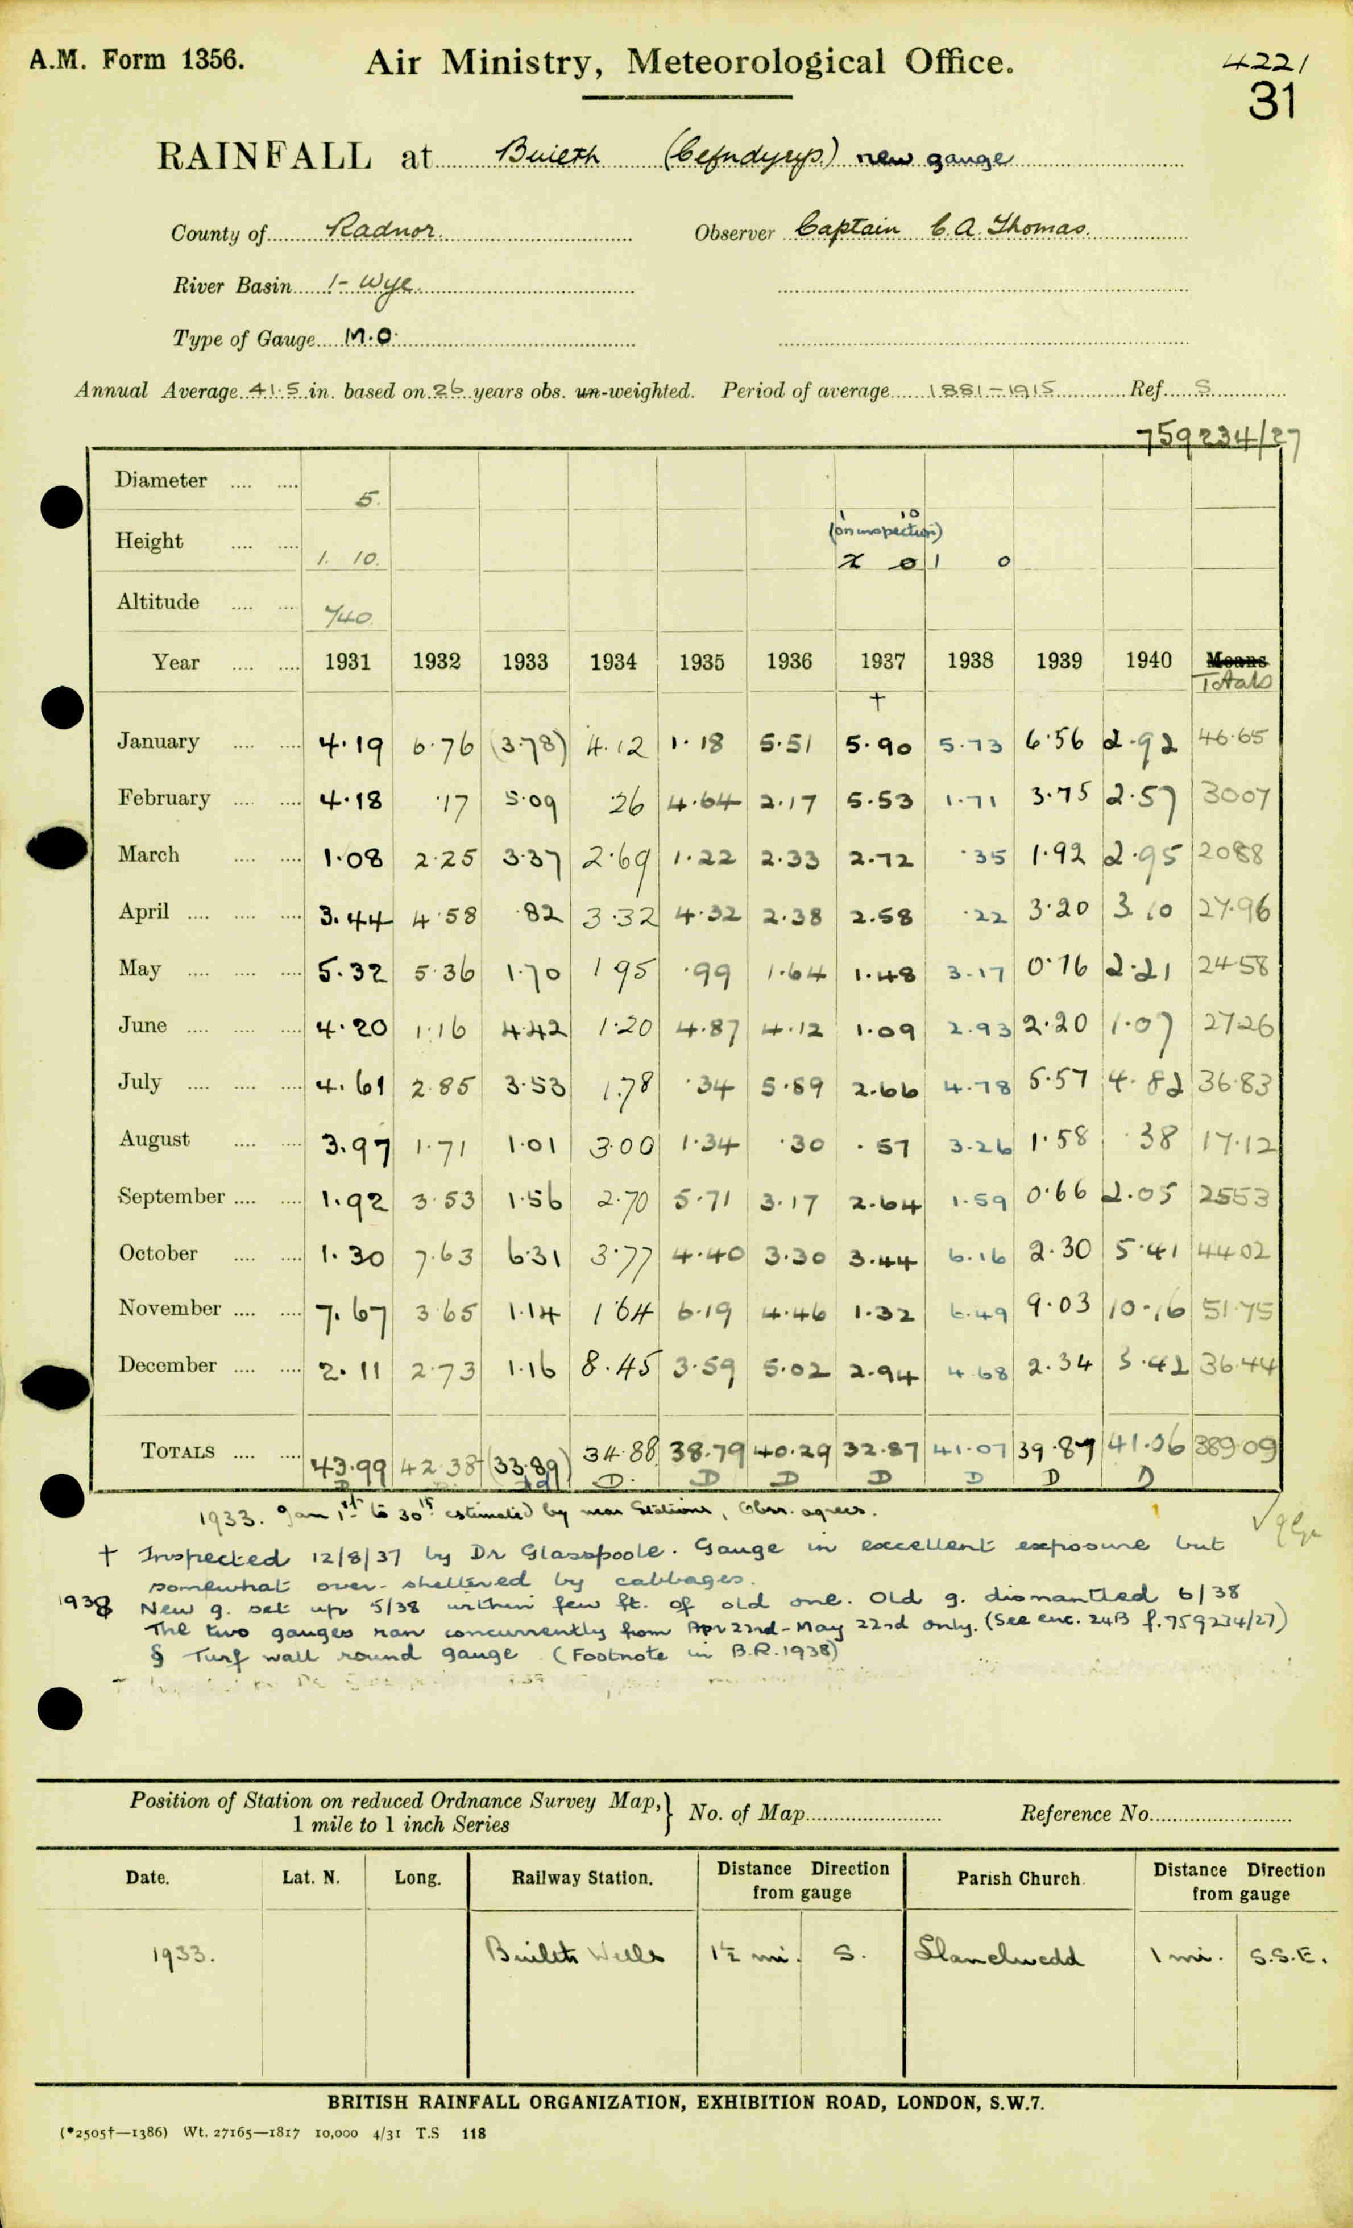 A.M. Form 1356.
Air Ministry, Meteorological Office.
4221
31
RAINFALL at Builth (Cefndyrys) new gauge
County of Radnor. Observer Captain C.A. Thomas.
River Basin 1- Wye
Type of Gauge M.O.
Annual Average 41.5 in. based on 26 years obs. un-weighted. Period of average 1881-1915 Ref. S
759234/27
Diameter .... .... 5.
1 10
(on inspection)
Height .... .... 1. 10. 1 0
Altitude .... .... 740
Year .... .... 1931 1932 1933 1934 1935 1936 1937 1938 1939 1940 Means
Totals
†
January .... .... 4.19 6.76 (3.78) 4.12 1.18 5.51 5.90 5.73 6.56 2.92 46.65
February .... .... 4.18 .17 5.09 .26 4.64 2.17 5.53 1.71 3.75 2.57 3007
March .... .... 1.08 2.25 3.37 2.69 1.22 2.33 2.72 .35 1.92 2.95 2088
April .... .... .... 3.44 4.58 .82 3.32 4.32 2.38 2.58 .22 3.20 3.10 27.96
May .... .... .... 5.32 5.36 1.70 1 95 .99 1.64 1.48 3.17 0.76 2.21 24.58
June .... .... .... 4.20 1.16 4.42 1.20 4.87 4.12 1.09 2.93 2.20 1.07 27.26
July .... .... .... 4.61 2.85 3.53 1.78 .34 5.89 2.66 4.78 5.57 4.82 36.83
August .... .... 3.97 1.71 1.01 3.00 1.34 .30 .57 3.26 1.58 .38 17.12
September .... .... 1.92 3.53 1.56 2.70 5.71 3.17 2.64 1.59 0.66 2.05 2553
October .... .... 1.30 7.63 6.31 3.77 4.40 3.30 3.44 6.16 2.30 5.41 44.02
November .... .... 7.67 3.65 1.14 1.64 6.19 4.46 1.32 6.49 9.03 10.16 51.75
December .... .... 2.11 2.73 1.16 8.45 3.59 5.02 2.94 4.68 2.34 5.42 36.44
TOTALS .... .... 43.99 42.38 (33.89) 34.88 38.79 40.29 32.87 41.07 39.87 41.06 389.09
D D D D D D D
1933. Jan 1st to 30th estimated by near Stations, Obsr. agrees.
† Inspected 12/8/37 by Dr Glasspoole. Gauge in excellent exposure but
somewhat over-sheltered by cabbages.
1938 New g. set up 5/38 within few ft. of old one. Old g. dismantled 6/38
The two gauges ran concurrently from Apr 22nd-May 22nd only. (See enc. 24B f.759234/27)
§ Turf wall round gauge (Footnote in B.R.1938)
Position of Station on reduced Ordnance Survey Map,} No. of Map Reference No.
1 mile to 1 inch Series
Date. Lat. N. Long. Railway Station. Distance Direction from gauge Parish Church. Distance Direction from gauge
1933. Builth Wells 1½ mi. S. Llanelwedd 1 mi. S.S.E.
BRITISH RAINFALL ORGANIZATION, EXHIBITION ROAD, LONDON, S.W.7.
(*2505†—1386) Wt. 27165—1817 10,000 4/31 T.S 118